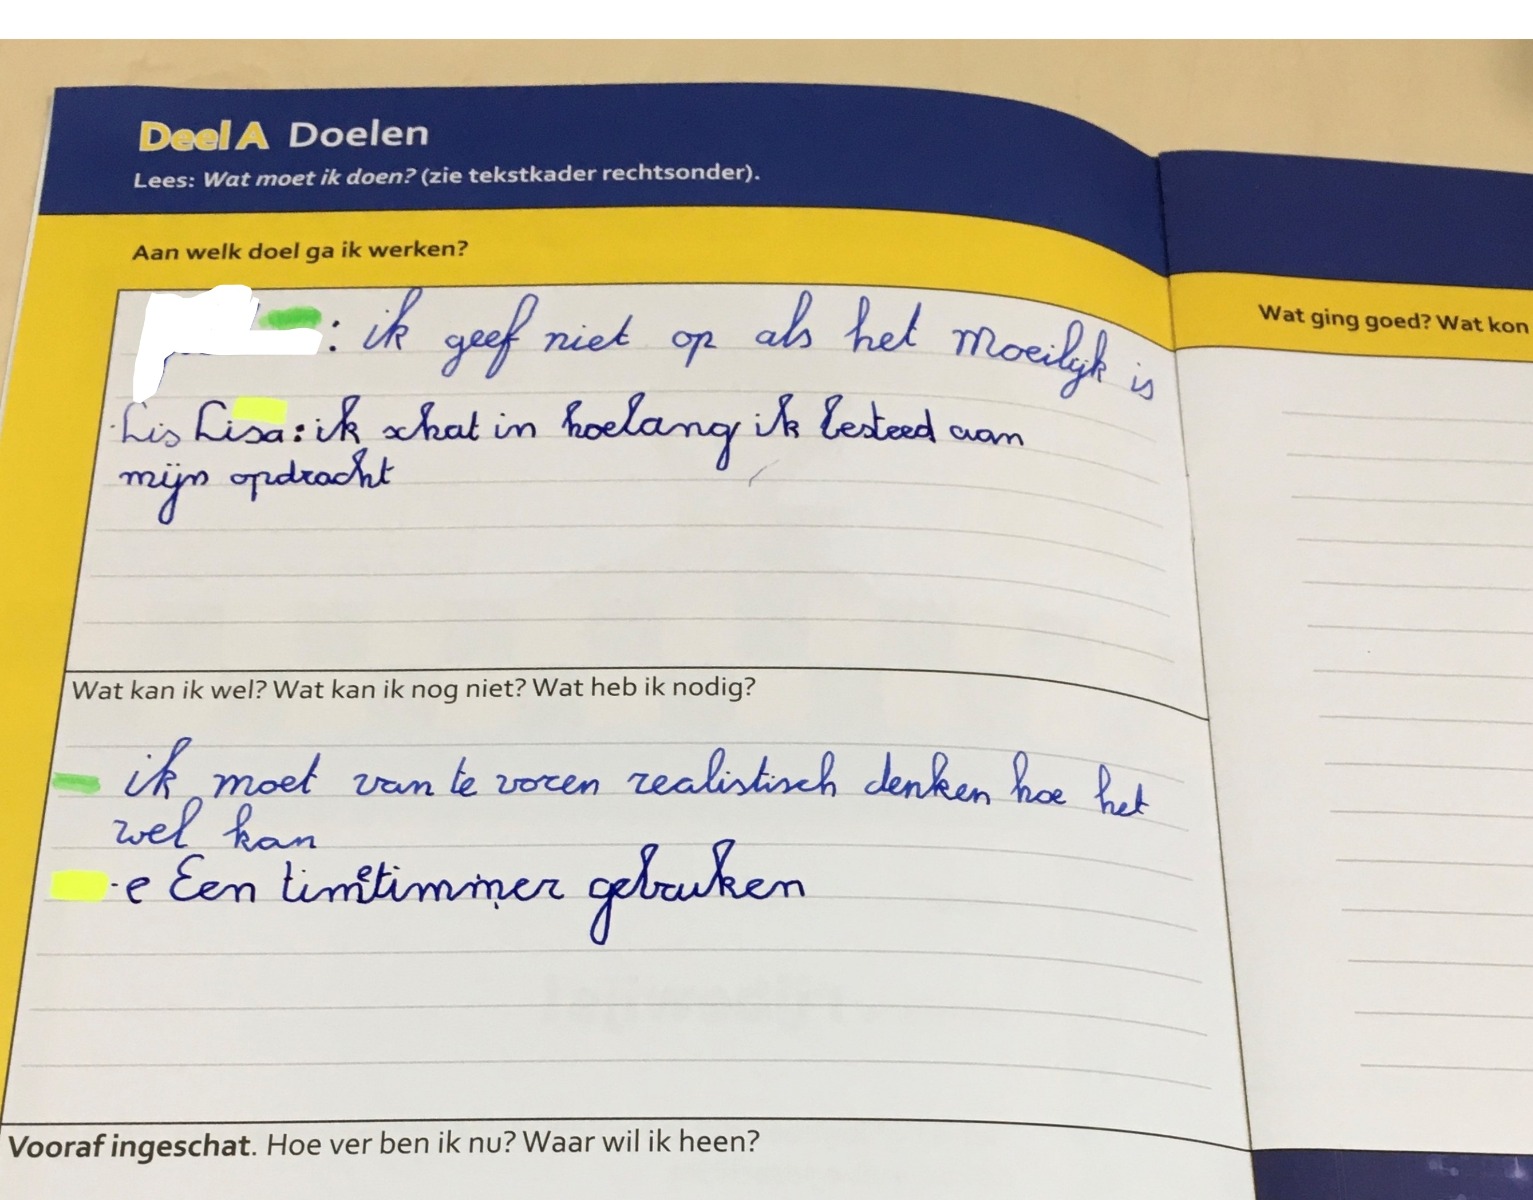 Deel A Doelen
Lees: Wat moet ik doen? (zie tekstkader rechtsonder).
Aan welk doel ga ik werken?
: ik geef niet op als het moeilijk is
Lis Lisa: ik schat in hoelang ik besteed aan
mijn opdracht
Wat kan ik wel? Wat kan ik nog niet? Wat heb ik nodig?
- ik moet van te voren realistisch denken hoe het
wel kan
- e Een timetimmer gebruken
Vooraf ingeschat. Hoe ver ben ik nu? Waar wil ik heen?
Wat ging goed? Wat kon